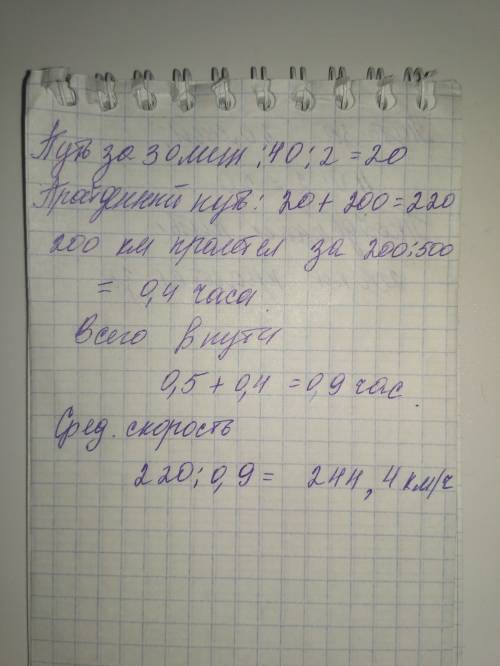 Путь за 30 мин: 40:2=20
Пройденный путь: 20+200=220
200 км пролетел за 200:500
= 0,4 часа
Всего в пути
0,5+0,4=0,9 час.
Сред. скорость
220:0,9= 244,4 км/ч